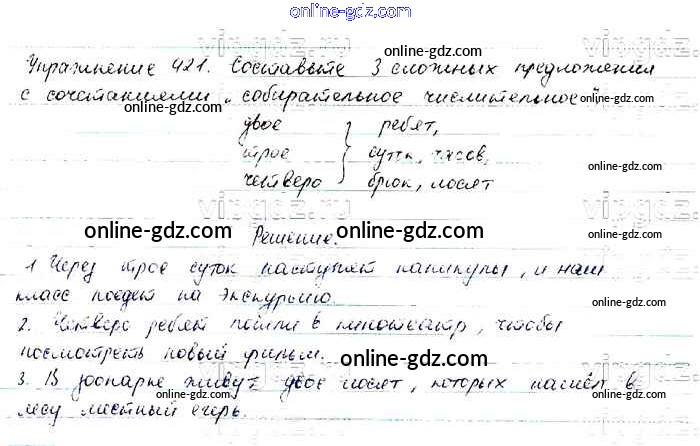 online-gdz.com
Упражнение 421. Составьте 3 сложных предложения
online-gdz.com
с сочетаниями „собирательное числительное"
двое ребят,
online-gdz.com
трое суток, часов,
online-gdz.com
четверо брюк, лосят
online-gdz.com
online-gdz.com
Решение.
1. Через трое суток наступят каникулы, и наш
класс поедет на экскурсию.
online-gdz.com
2. Четверо ребят пошли в кинотеатр, чтобы
посмотреть новый фильм.
online-gdz.com
3. В зоопарке живут двое лосят, которых нашёл в
online-gdz.com
online-gdz.com
лесу местный егерь.